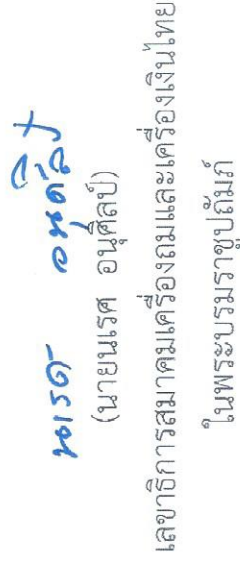 นเรศ อนุศิลป์
(นายนเรศ อนุศิลป์)
เลขาธิการสมาคมเครื่องถมและเครื่องเงินไทย
ในพระบรมราชูปถัมภ์